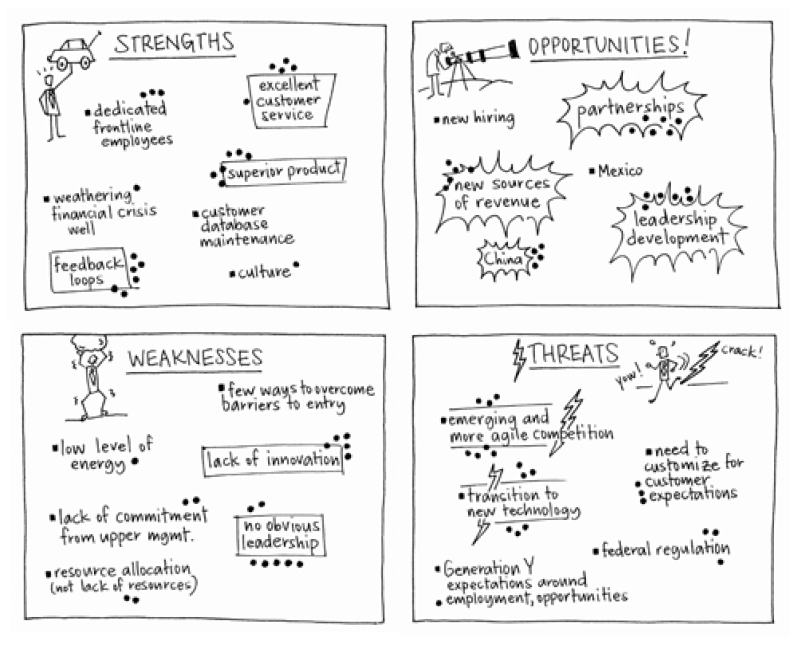 STRENGTHS
dedicated
frontline
employees
excellent
customer
service
superior product
weathering
financial crisis
well
customer
database
maintenance
feedback
loops
culture
OPPORTUNITIES!
new hiring
partnerships
new sources
of revenue
Mexico
leadership
development
China
WEAKNESSES
few ways to overcome
barriers to entry
low level of
energy
lack of innovation
lack of commitment
from upper mgmt.
no obvious
leadership
resource allocation
(not lack of resources)
THREATS
yow!
crack!
emerging and
more agile competition
need to
customize for
customer
expectations
transition to
new technology
federal regulation
Generation Y
expectations around
employment, opportunities